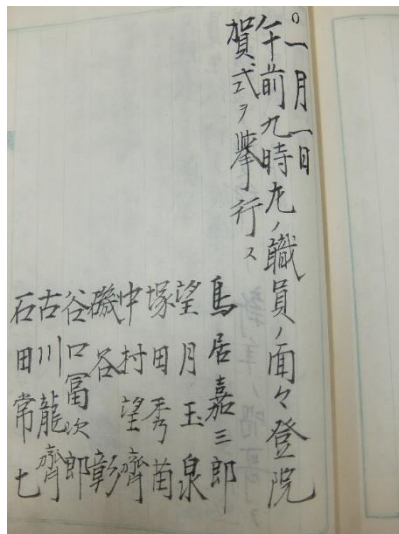 ○一月一日
午前九時左ノ職員ノ面々登院
賀式ヲ挙行ス
鳥居嘉三郎
望月玉泉
塚田秀苗
中村望齋
磯谷彰
谷口冨次郎
古川龍齋
石田常七